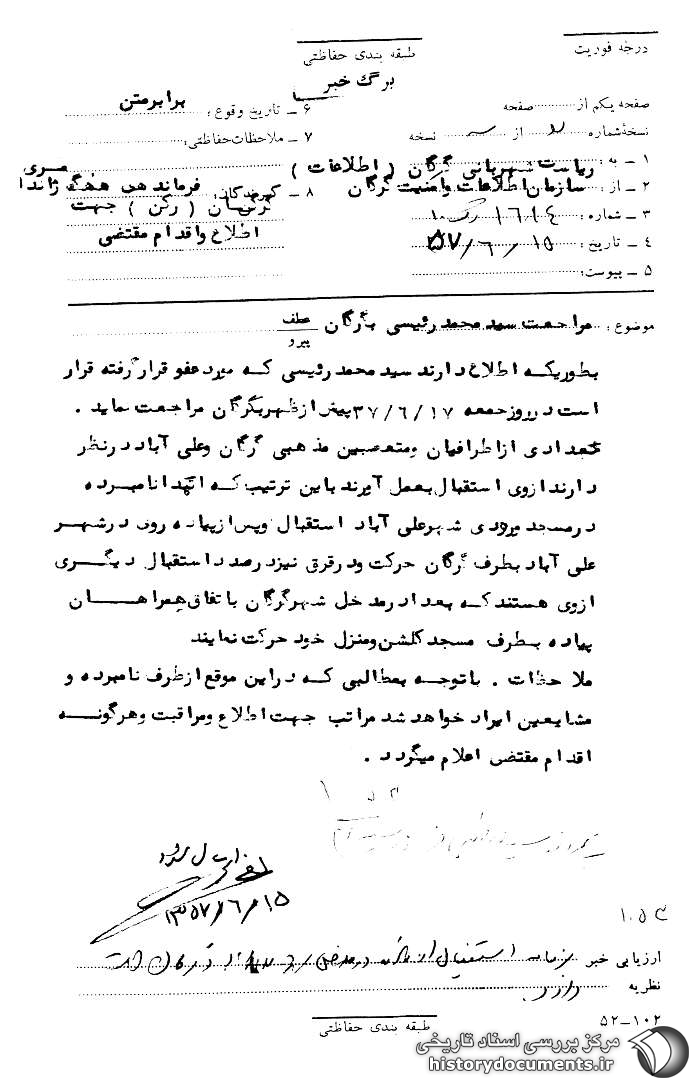 درجه فوریت
طبقه بندی حفاظتی
برگ خبر
صفحه یکم از صفحه
نسخهٔ شماره از نسخه
۱ – به : ریاست شهربانی گرگان ( اطلاعات )
۲ – از : سازمان اطلاعات وامنیت گرگان
۳ – شماره :
۴ – تاریخ : ۵۷/۶/۱۵
۵ – پیوست:
۶ – تاریخ وقوع : برابرمتن
۷ – ملاحظات حفاظتی:
۸ – گیرندگان: فرماندهی هنگ ژاندا
مری
گرگان ( رکن ) جهت
اطلاع واقدام مقتضی
موضوع : مراجعت سید محمد رئیسی بگرگان عطف
پیرو
بطوریکه اطلاع دارند سید محمد رئیسی که مورد عفو قرار گرفته قرار
است در روز جمعه ۳۷/۶/۱۷ پیش از ظهر بگرگان مراجعت نماید .
تعدادی از اطرافیان ومتعصبین مذهبی گرگان وعلی آباد در نظر
دارند ازوی استقبال بعمل آورند باین ترتیب که ابتدا نامبرده
در مسجد ورودی شهر علی آباد استقبال وپس از پیاده روی در شهر
علی آباد بطرف گرگان حرکت ودر قرق نیز در صدد استقبال دیگری
ازوی هستند که بعدا در مدخل شهر گرگان با تفاق همراهان
پیاده بطرف مسجد گلشن ومنزل خود حرکت نمایند
ملاحظات . با توجه بمطالبی که در این موقع از طرف نامبرده و
مشایعین ایراد خواهد شد مراتب جهت اطلاع ومراقبت وهرگونه
اقدام مقتضی اعلام میگردد .
۱۳۵۷/۶/۱۵
ارزیابی خبر
نظریه
۵۲–۱۰۲
طبقه بندی حفاظتی
مرکز بررسی اسناد تاریخی
historydocuments.ir